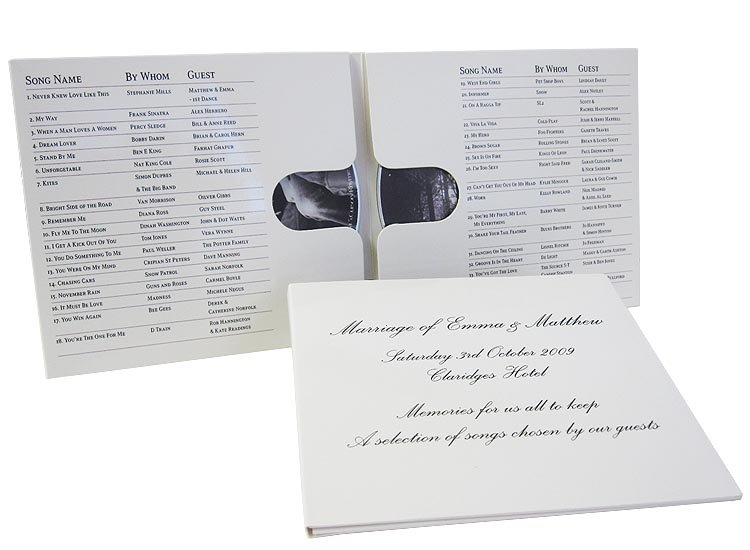 SONG NAME BY WHOM GUEST
1. NEVER KNEW LOVE LIKE THIS STEPHANIE MILLS MATTHEW & EMMA
- 1ST DANCE
2. MY WAY FRANK SINATRA ALEX HERRERO
3. WHEN A MAN LOVES A WOMEN PERCY SLEDGE BILL & ANNE REED
4. DREAM LOVER BOBBY DARIN BRIAN & CAROL HERN
5. STAND BY ME BEN E KING FARHAT GHAFUR
6. UNFORGETTABLE NAT KING COLE ROSIE SCOTT
7. KITES SIMON DUPRES MICHAEL & HELEN HILL
& THE BIG BAND
8. BRIGHT SIDE OF THE ROAD VAN MORRISON OLIVER GIBBS
9. REMEMBER ME DIANA ROSS GUY STEEL
10. FLY ME TO THE MOON DINAH WASHINGTON JOHN & DOT WATTS
11. I GET A KICK OUT OF YOU TOM JONES VERA WYNNE
12. YOU DO SOMETHING TO ME PAUL WELLER THE POSTER FAMILY
13. YOU WERE ON MY MIND CRIPIAN ST PETERS DAVE MANNING
14. CHASING CARS SNOW PATROL SARAH NORFOLK
15. NOVEMBER RAIN GUNS AND ROSES CARMEL BOYLE
16. IT MUST BE LOVE MADNESS MICHELE NEGUS
17. YOU WIN AGAIN BEE GEES DEREK &
CATHERINE NORFOLK
18. YOU'RE THE ONE FOR ME D TRAIN ROB HANNINGTON
& KATE READINGS
SONG NAME BY WHOM GUEST
19. WEST END GIRLS PET SHOP BOYS LINDSAY DAILLY
20. INFORMER SNOW ALEX NOTLEY
21. ON A RAGGA TIP SL2 SCOTT &
RACHEL HANNINGTON
22. VIVA LA VIDA COLD-PLAY JOSIE & JERRY HARTELL
23. MY HERO FOO FIGHTERS GARETH TRAVES
24. BROWN SUGAR ROLLING STONES BRIAN & JANET SCOTT
25. SEX IS ON FIRE KINGS OF LEON PAUL DRINKWATER
26. I'M TOO SEXY RIGHT SAID FRED SARAH CLELAND-SMITH
& NICK SADDLER
27. CAN'T GET YOU OUT OF MY HEAD KYLIE MINOGUE LAURA & GUE COMIE
28. WORK KELLY ROWLAND NEIL MADRID
& ADEL AL SAED
29. YOU'RE MY FIRST, MY LAST, BARRY WHITE JAMES & ROYCE TURNER
MY EVERYTHING
30. SHAKE YOUR TAIL FEATHER BLUES BROTHERS JO HANNAFEY
& SIMON HINTON
31. DANCING ON THE CEILING LIONEL RITCHIE JO FREEMAN
32. GROOVE IS IN THE HEART DE LIGHT MADDY & GARTH ASHTON
33. YOU'VE GOT THE LOVE THE SOURCE FT SUSIE & BEN JONES
CANDEE STANTON
Marriage of Emma & Matthew
Saturday 3rd October 2009
Claridges Hotel
Memories for us all to keep
A selection of songs chosen by our guests